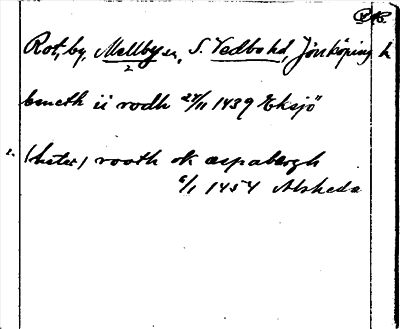 Rot, by, Mellby sn, S. Vedbo hd, Jönköping l.
2
beneth ii rodh 24/11 1439 Eksjö
2. (heter) rooth ok aspabergh
6/1 1454 Alsheda